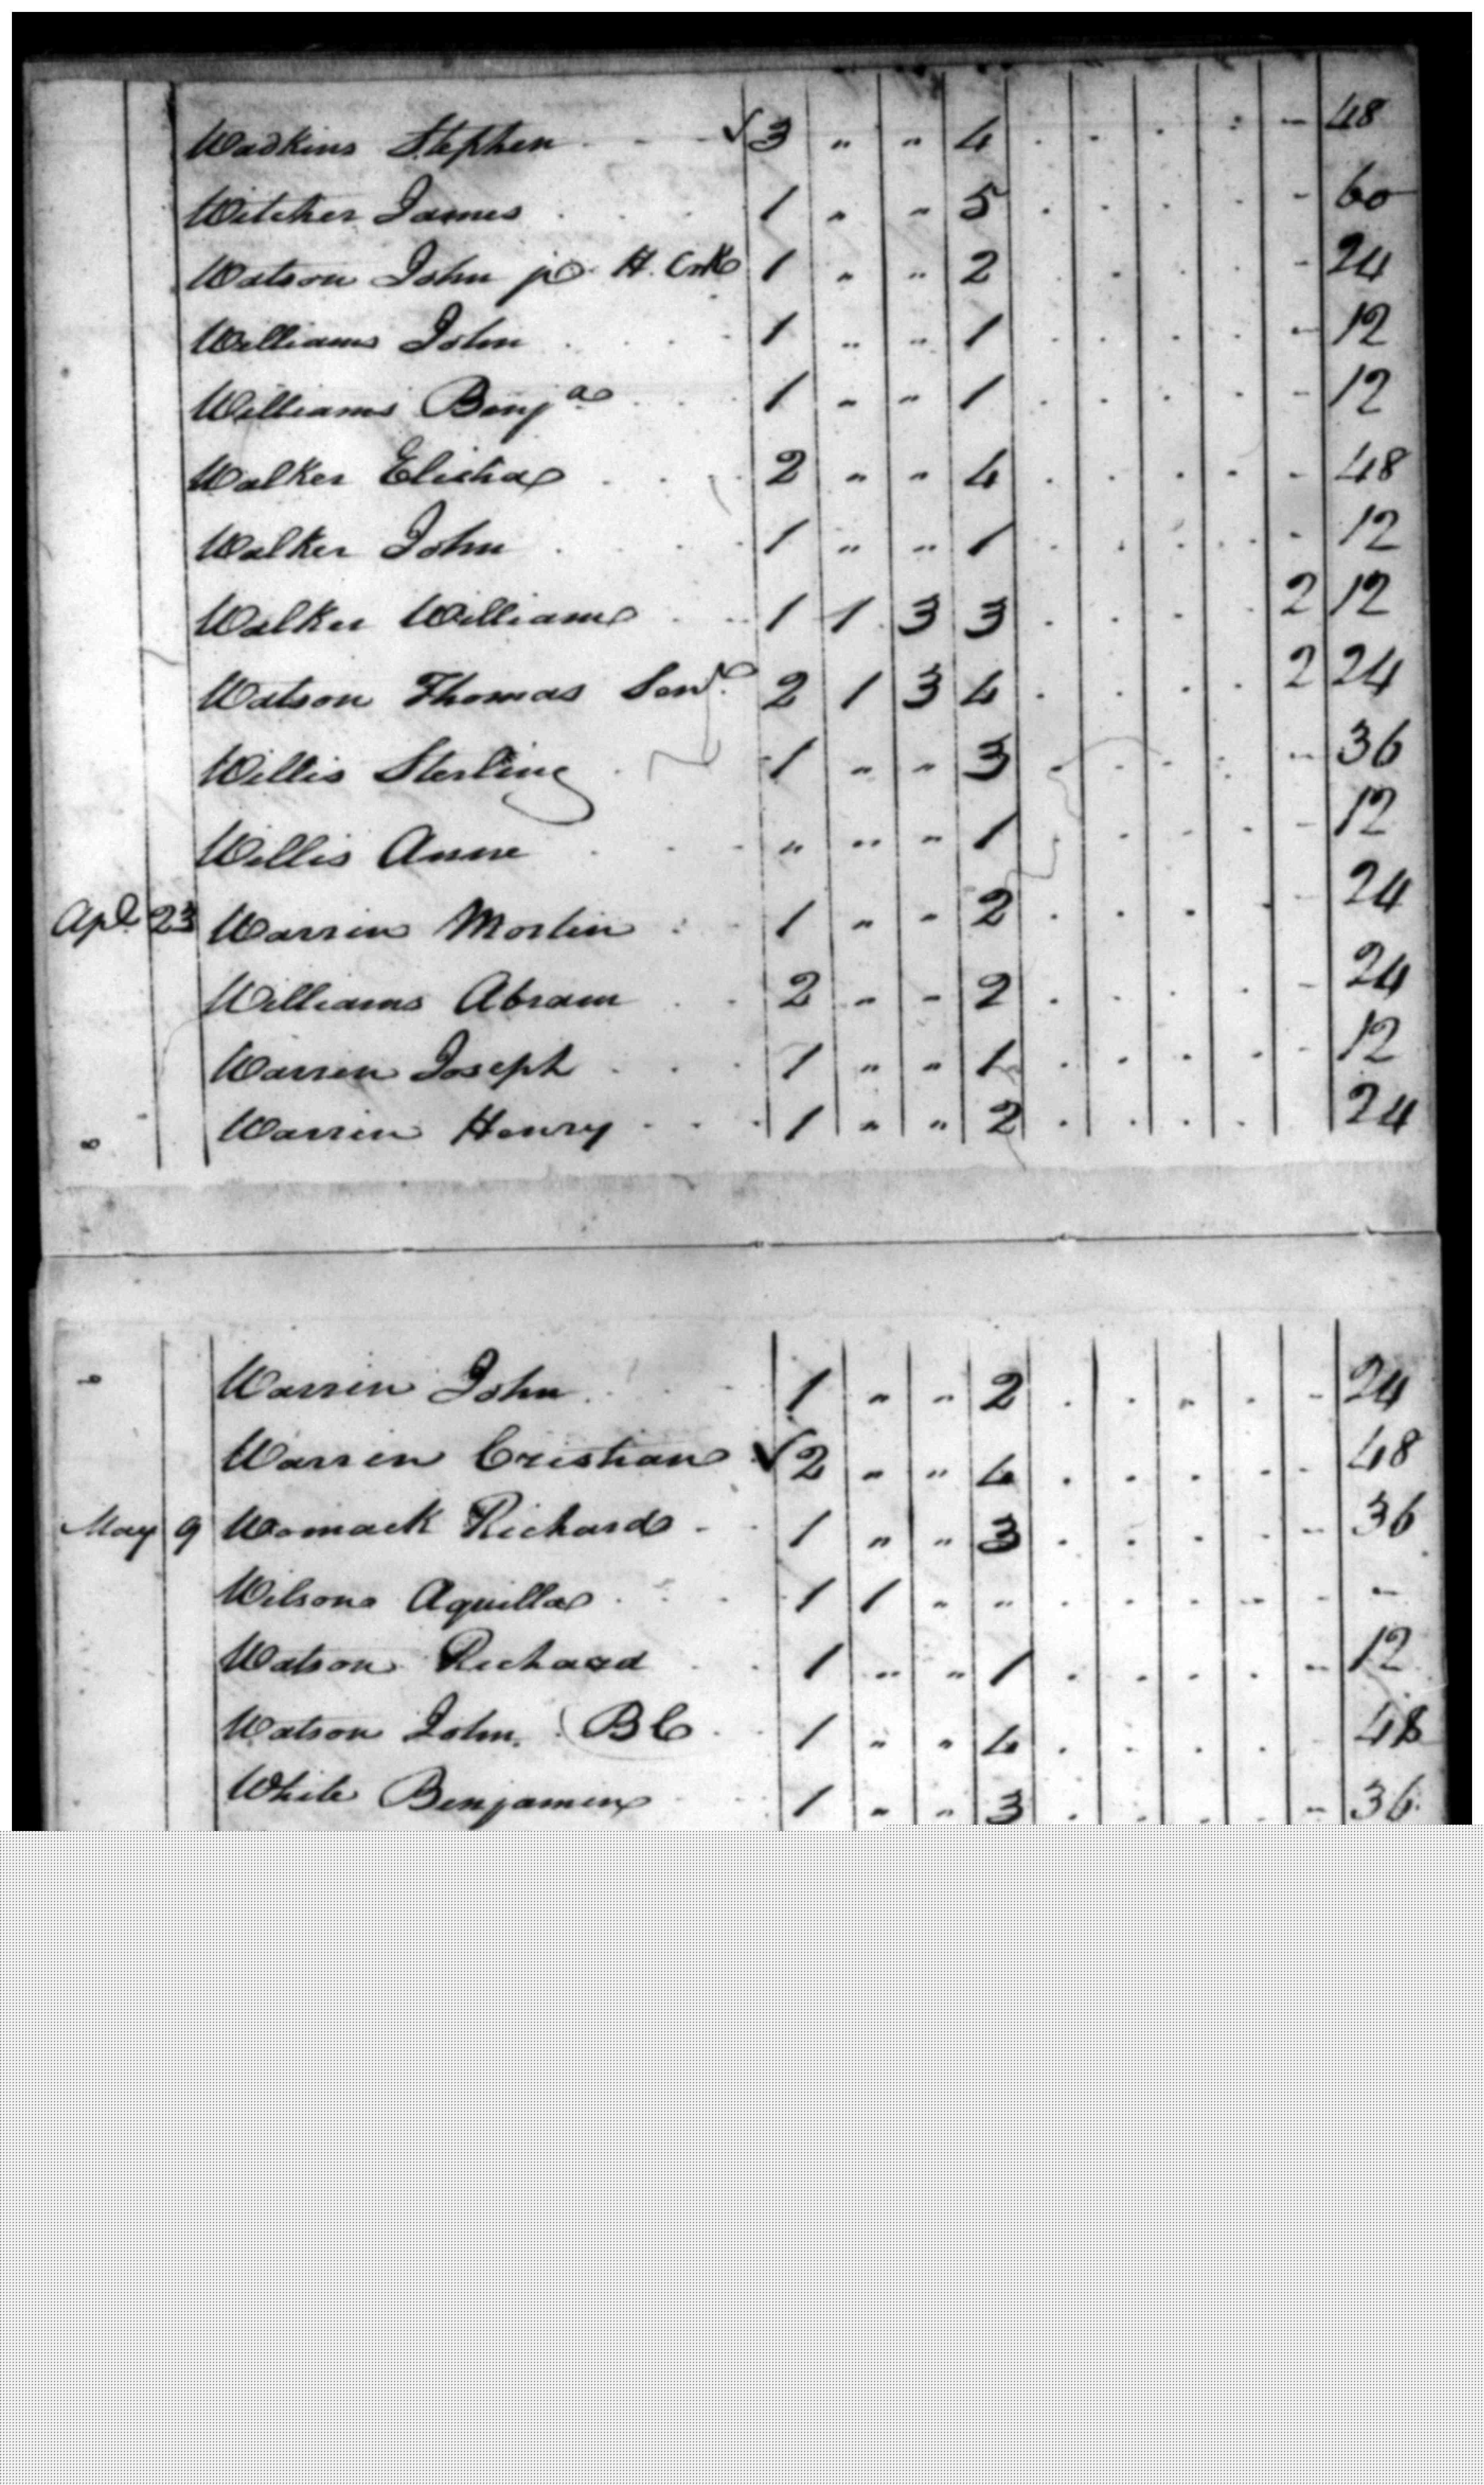 Wadkins Stephen - - √ 3 " " 4 . . . . - 48
Witcher James . . . 1 " " 5 . . . . - 60
Watson John jr H. Crk 1 " " 2 . . . . - 24
Williams John . . . 1 " " 1 . . . . - 12
Williams Benja . . . 1 " " 1 . . . . - 12
Walker Elisha . . . 2 " " 4 . . . . - 48
Walker John . . . 1 " " 1 . . . . - 12
Walker William . . 1 1 3 3 . . . . 2 12
Watson Thomas Senr 2 1 3 4 . . . . 2 24
Willis Sterling . 1 " " 3 . . . . - 36
Willis Anne . . . " " " 1 . . . . - 12
Apl 23 Warren Mostin . . 1 " " 2 . . . . - 24
Williams Abram . . 2 " " 2 . . . . - 24
Warren Joseph . . . 1 " " 1 . . . . - 12
Warren Henry . . . 1 " " 2 . . . . 24
Warren John . . . 1 " " 2 . . . . - 24
Warren Cristian √ 2 " " 4 . . . . - 48
May 9 Womack Richard - . 1 " " 3 . . . . - 36
Wilson Aquilla . . . 1 1 " " . . . . - -
Watson Richard . . 1 " " 1 . . . . - 12
Watson John. (BC . . 1 " " 4 . . . . . 48
White Benjamin . . 1 " " 3 . . . . - 36